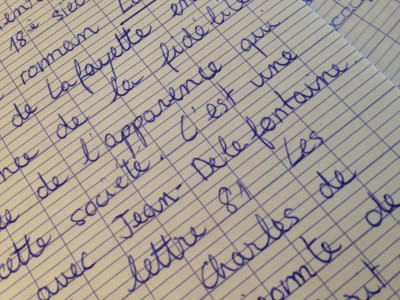 18e siècl
roman La
de Lafayette en
de la fidélité
de l'apparence qui
cette société. C'est une
avec Jean-Dela fontaine.
lettre 81 Les
Charles de
de